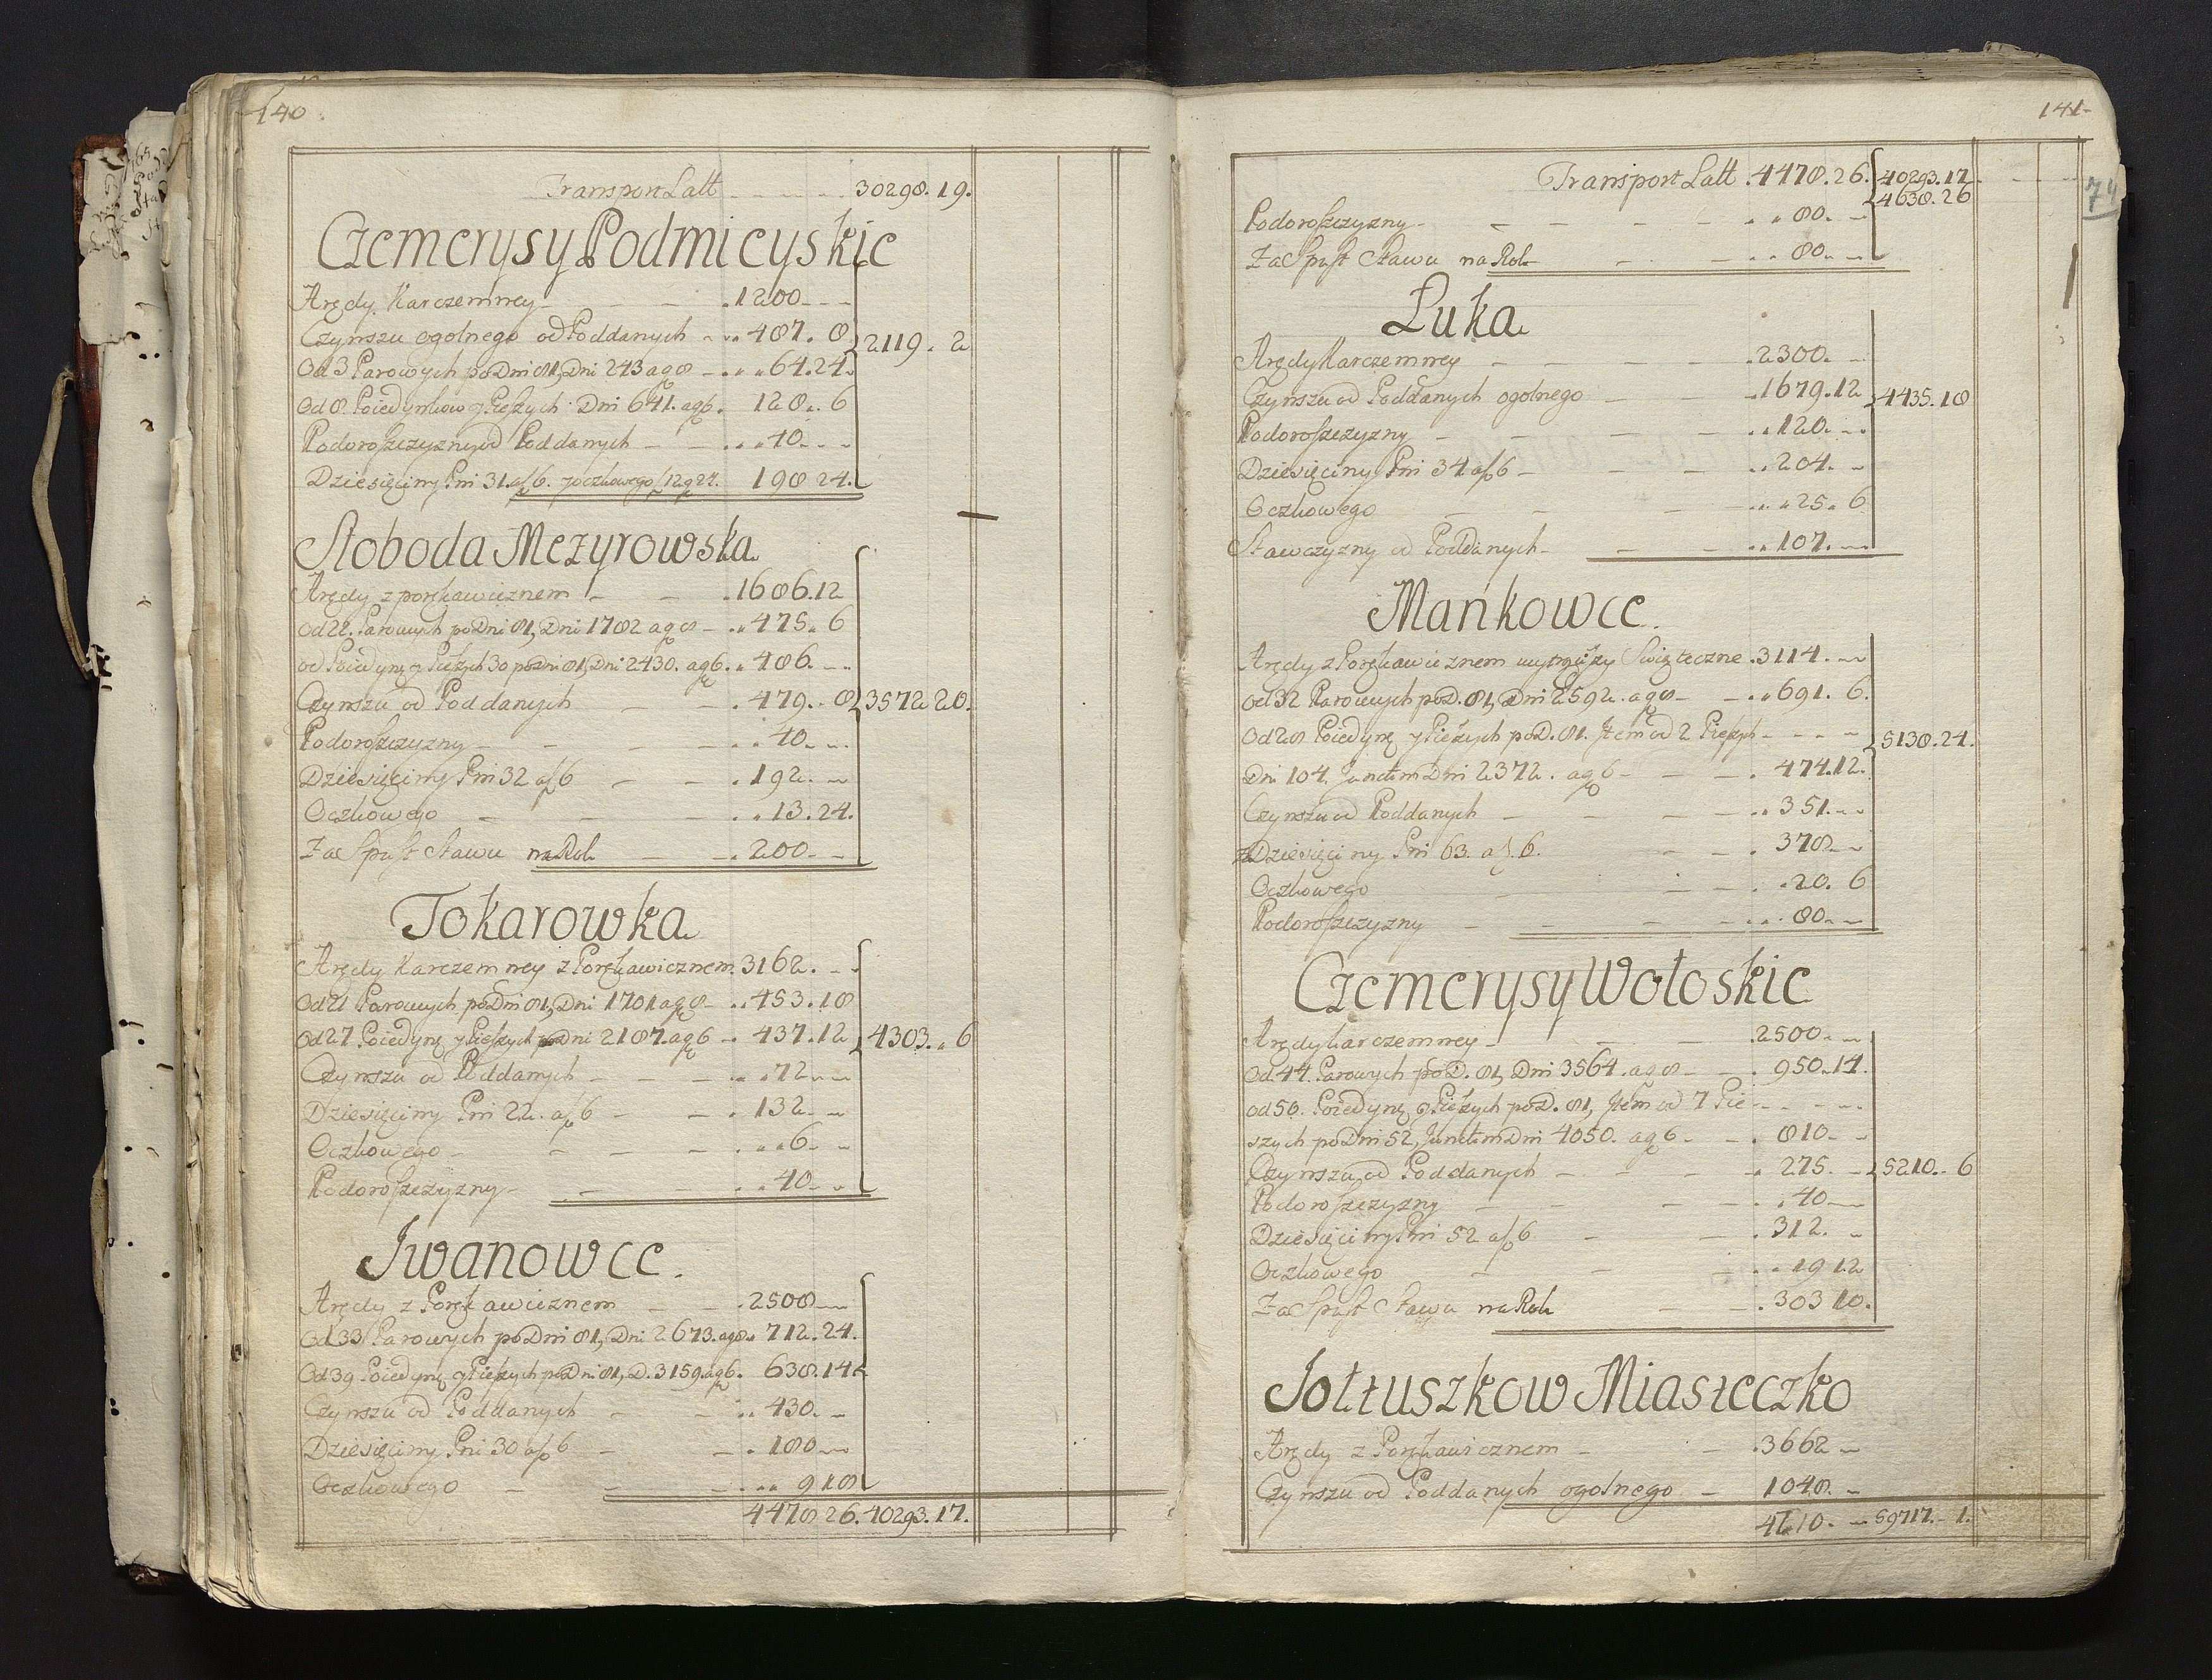 140
Transport Latt 30298.19.
Czemerysy Podmieyskie
Arędy Karczemney 1200
Czynszu ogolnego od Poddanych 487. 8
Od 3 Parowych po Dni 81, Dni 243 a g 8 64.24.
Od 8 Poiedynkow y Pieszych Dni 641. a g 6. 128. 6
Podoroszczyzny od Poddanych 40
Dziesięciny Pni 31. a f 6. y oczkowego f 12 g 24. 198 24.
2119. 2
Słoboda Mezyrowska
Arędy z porękawicznem 1686.12
Od 22. Parowych po Dni 81, Dni 1782 a g 8 475. 6
od Poiedynę y Pieszych 30 po Dni 81, Dni 2430. a g 6. 486.
Czynszu od Poddanych 479. 8
3572 20.
Podoroszczyzny 40
Dziesięciny Pni 32 a f 6 192.
Oczkowego 13.24.
Za Spust Stawu na Rok 200
Tokarowka
Arędy Karczemney z Porękawicznem 3162.
Od 21 Parowych po Dni 81, Dni 1701 a g 8 453.18
Od 27 Poiedynę y Pieszych po Dni 2187. a g 6 437.12
4303. 6
Czynszu od Poddanych 72
Dziesięciny Pni 22. a f 6 132.
Oczkowego 6
Podoroszczyzny 40
Iwanowce.
Arędy z Porękawicznem 2508
Od 33 Parowych po Dni 81, Dni 2673. a g 8. 712.24.
Od 39 Poiedynę y Pieszych po Dni 81, D. 3159. a g 6. 638.14
Czynszu od Poddanych 430.
Dziesięciny Pni 30 a f 6 180
Oczkowego 9 18
4478 26. 40293.17.
141
74
Transport Latt 4478.26. 40293.17.
4638.26
Podoroszczyzny 80.
Za Spust Stawu na Rok 80.
Łuka
Arędy Karczemney 2300.
Czynszu od Poddanych ogolnego 1679.12
4435.18
Podoroszczyzny 120.
Dziesięciny Pni 34. a f 6 204.
Oczkowego 25. 6
Stawczyzny od Poddanych 107.
Mańkowce.
Arędy z Porękawicznem Swięteczne 3114.
od 32 Parowych po D. 81, Dni 2592. a g 8 691. 6.
Od 28 Poiedynę y Pieszych po D. 81. Item od 2 Pieszych
5138.24.
Dni 104. Junctim Dni 2372. a g 6 474.12.
Czynszu od Poddanych 351.
Dziesięciny Pni 63. a f. 6. 378
Oczkowego 20. 6
Podoroszczyzny 80
Czemerysy Wołoskie
Arędy karczemney 2500
Od 44. Parowych po D. 81, Dni 3564. a g 8 950.14.
od 50. Poiedynę y Pieszych po D. 81, Item od 7 Pie
szych po Dni 52, Junctim Dni 4050. a g 6 810
Czynszu od Poddanych 275.
5210. 6
Podoroszczyzny 40
Dziesięciny Pni 52 a f 6 312.
Oczkowego 19 12
Za Spust Stawu na Rok 303 10.
Jołtuszkow Miasteczko
Arędy z Porękawicznem 3662
Czynszu od Poddanych ogolnego 1048.
4710. 59717. 1.